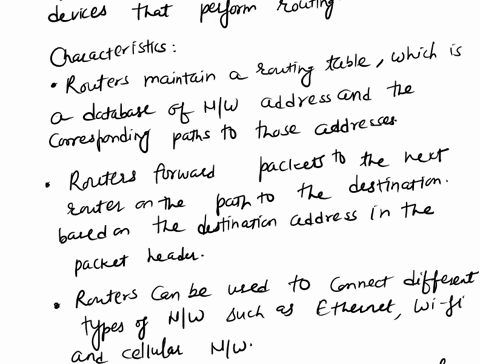 devices that perform routing
Characteristics:
• Routers maintain a routing table, which is
a database of N/W address and the
corresponding paths to those addresses.
• Routers forward packets to the next
router on the path to the destination.
based on the destination address in the
packet header.
• Routers can be used to connect different
types of N/W such as Ethernet, Wi-fi
and cellular N/W.